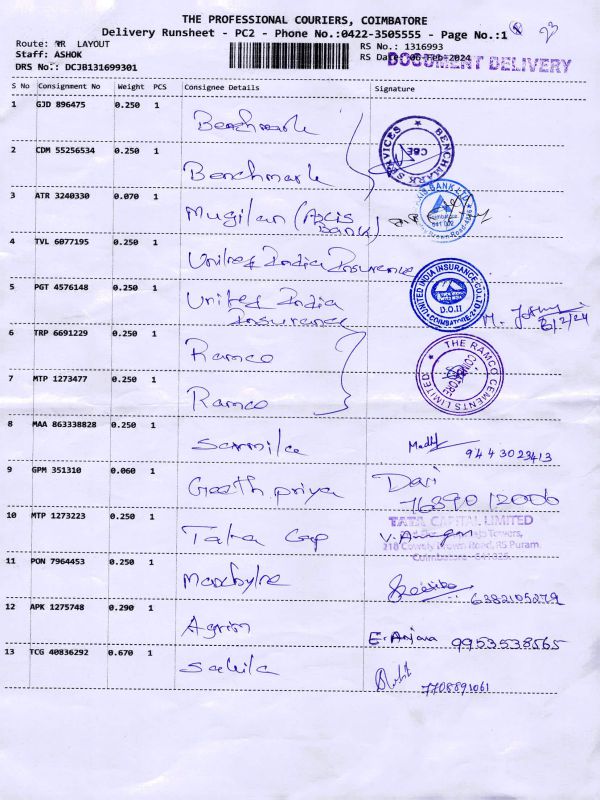 THE PROFESSIONAL COURIERS, COIMBATORE
Delivery Runsheet - PC2 - Phone No.:0422-3505555 - Page No.:1
23
Route: RR LAYOUT
Staff: ASHOK
DRS No.: DCJB131699301
RS No.: 1316993
RS Date: 06-Feb-2024
DOCUMENT DELIVERY
S No Consignment No Weight PCS Consignee Details Signature
1 GJD 896475 0.250 1 Benchmark
BENCHMARK SERVICES CBE
2 CDM 55256534 0.250 1 Benchmark
3 ATR 3240330 0.070 1 Mugilan (Axis Bank)
4 TVL 6077195 0.250 1 United India Insurance
5 PGT 4576148 0.250 1 United India Insurance
UNITED INDIA INSURANCE CO. LTD. D.O.II COIMBATORE
6/2/24
6 TRP 6691229 0.250 1 Ramco
THE RAMCO CEMENTS LIMITED COIMBATORE
7 MTP 1273477 0.250 1 Ramco
8 MAA 863338828 0.250 1 Sarmila
9443023413
9 GPM 351310 0.060 1 Geethpriya
7639012006
10 MTP 1273223 0.250 1 Tata Cap
TATA CAPITAL LIMITED
Towers,
218 Cowely Brown Road, RS Puram
Coimbatore
11 PON 7964453 0.250 1
6382105279
12 APK 1275748 0.290 1
E. Anjana 9953538565
13 TCG 40836292 0.670 1
7708891061